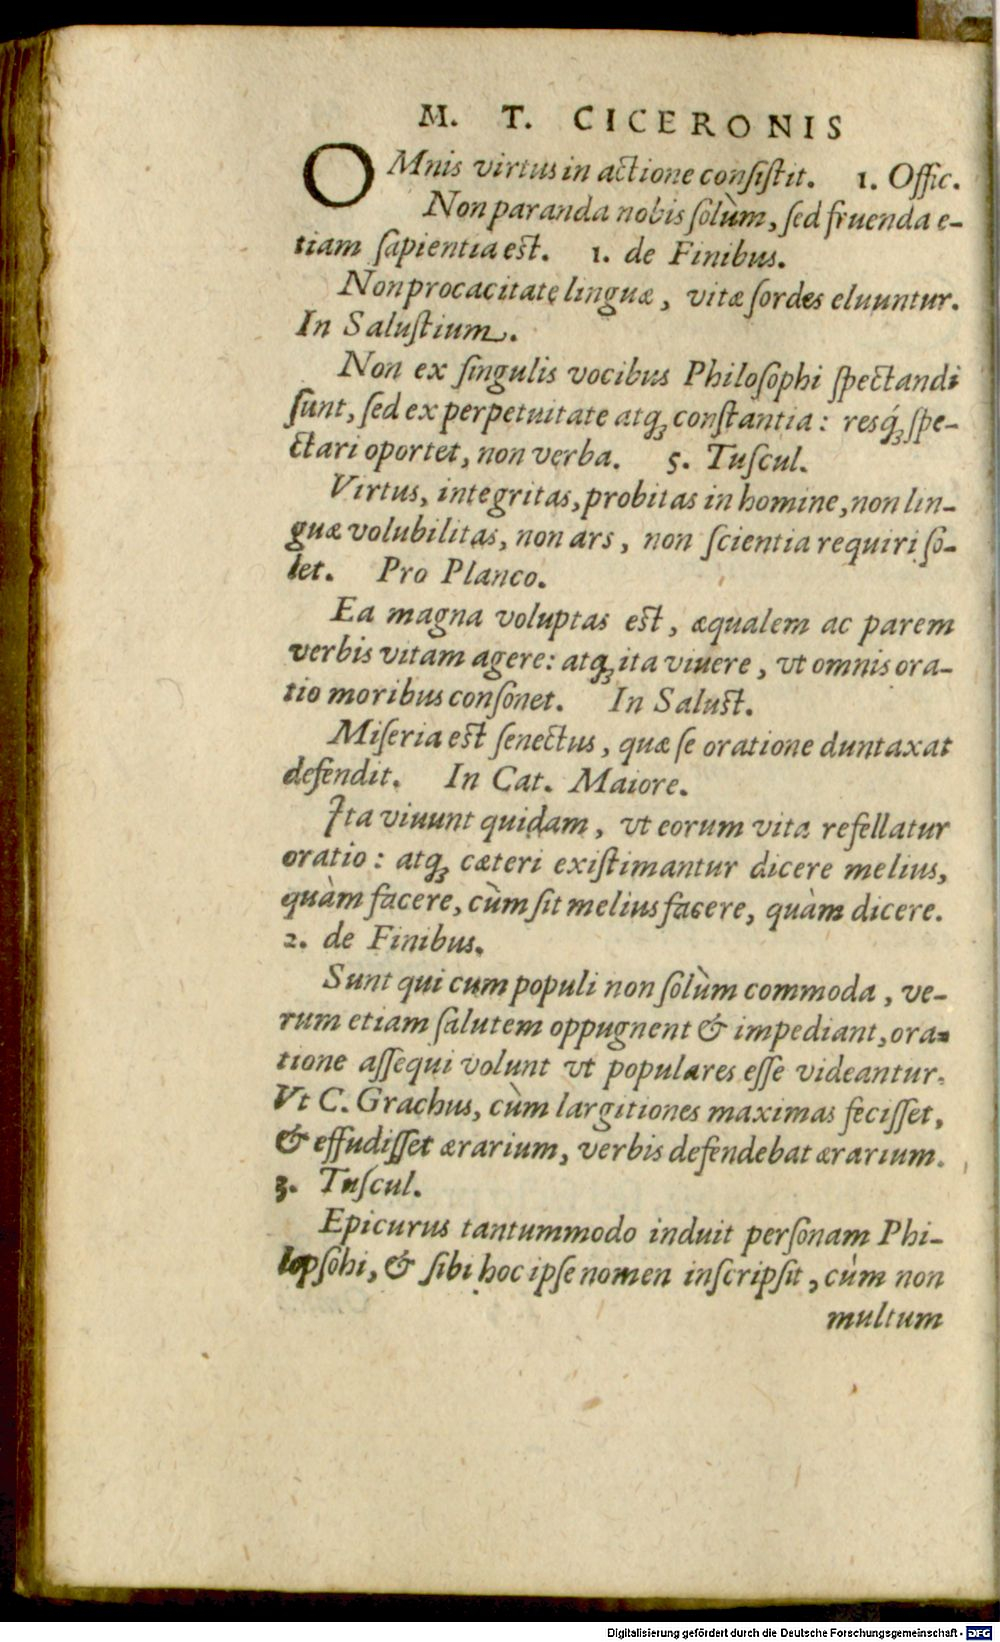 M. T. CICERONIS
OMnis virtus in actione consiſtit. 1. Offic.
Non paranda nobis ſolùm, ſed fruenda e-
tiam ſapientia est. 1. de Finibus.
Non procacitate linguæ, vitæ ſordes eluuntur.
In Saluſtium.
Non ex ſingulis vocibus Philoſophi ſpectandi
ſunt, ſed ex perpetuitate atq; conſtantia: resq́; ſpe-
ctari oportet, non verba. 5. Tuſcul.
Virtus, integritas, probitas in homine, non lin-
guæ volubilitas, non ars, non ſcientia requiri ſo-
let. Pro Planco.
Ea magna voluptas est, æqualem ac parem
verbis vitam agere: atq; ita viuere, vt omnis ora-
tio moribus conſonet. In Saluſt.
Miſeria est ſenectus, quæ ſe oratione duntaxat
defendit. In Cat. Maiore.
Ita viuunt quidam, vt eorum vita refellatur
oratio: atq; cæteri exiſtimantur dicere melius,
quàm facere, cùm ſit melius facere, quàm dicere.
2. de Finibus.
Sunt qui cum populi non ſolùm commoda, ve-
rum etiam ſalutem oppugnent & impediant, ora-
tione aſſequi volunt vt populares eſſe videantur.
Vt C. Grachus, cùm largitiones maximas feciſſet,
& effudiſſet ærarium, verbis defendebat ærarium.
3. Tuſcul.
Epicurus tantummodo induit perſonam Phi-
lopſohi, & ſibi hoc ipſe nomen inſcripſit, cùm non
multum
Digitalisierung gefördert durch die Deutsche Forschungsgemeinschaft - DFG